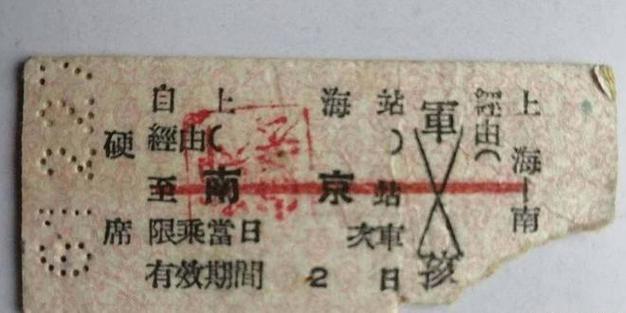 硬席
自上海站
經由( )
至南京站
限乘當日 次車
有效期間 2 日
軍
孩
經由(
上海—南